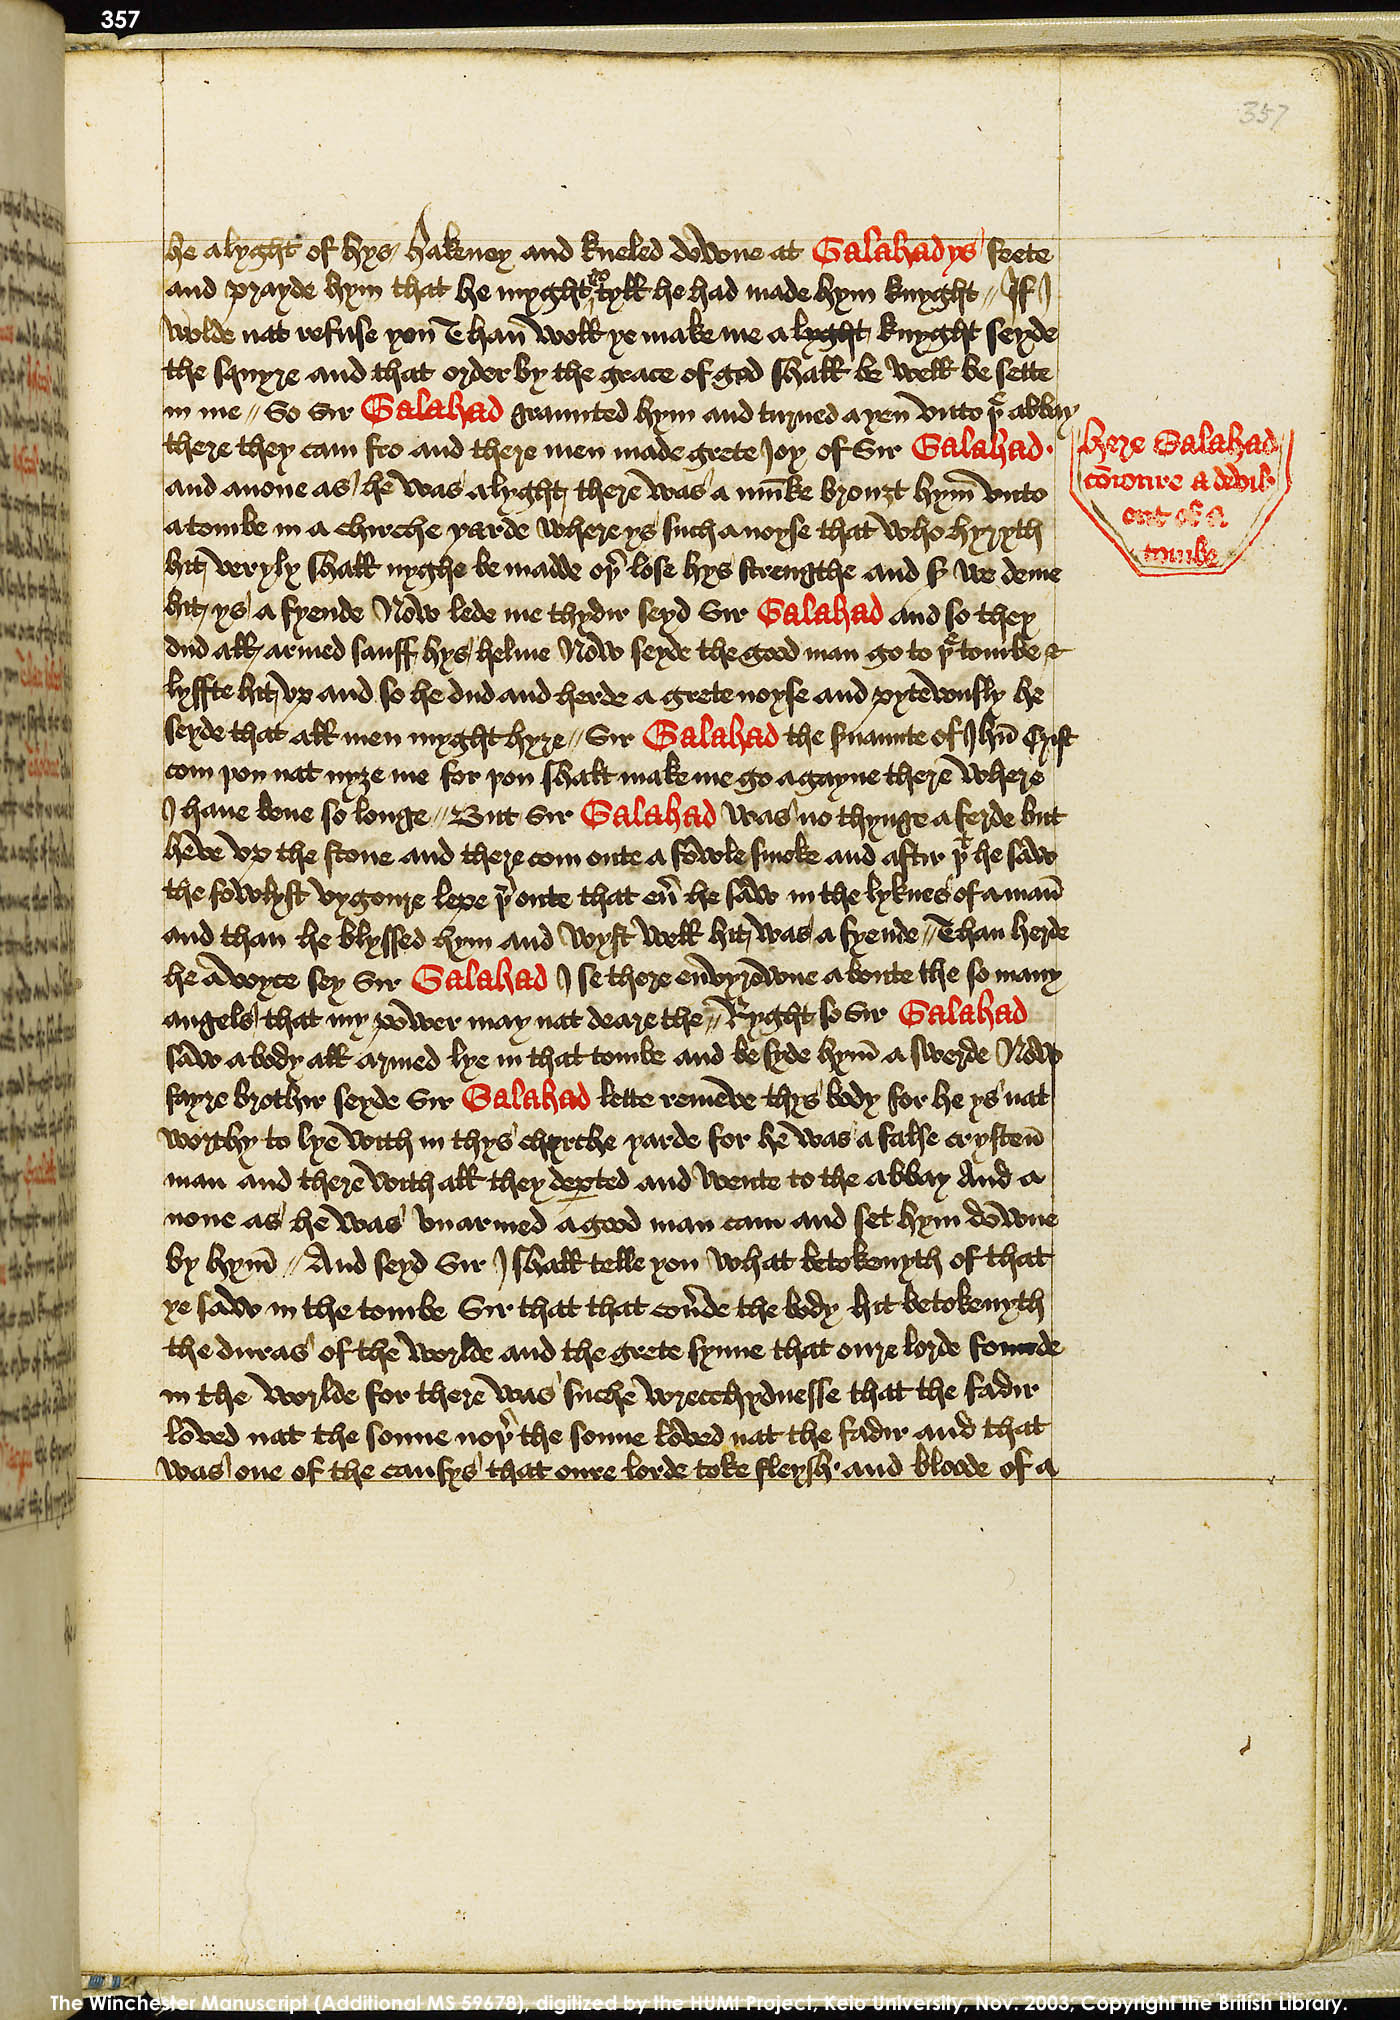 357
357
he alyght of hys hakeney and kneled downe at Galahadys feete
and prayde hym that he myght go tyll he had made hym knyght // If I
wolde nat refuse you Than woll ye make me a lyght knyght seyde
the squyre and that order by the grace of god shall be well be sette
in me // So Sir Galahad graunted hym and turned ayen vnto þe abbay
there they cam fro and there men made grete Joy of Sir Galahad·
and anone as he was alyght there was a mūke brouȝt hym̄ vnto
a tombe in a chirche yarde where ys such a noyse that who hyryth
hit veryly shall nyghe be madde oþr lose hys strengthe and sr we deme
hit ys a fyende Now lede me thydir seyd Sir Galahad and so they
dud all armed sauff hys helme Now seyde the good man go to þe tombe &
lyffte hit vp and so he dud and herde a grete noyse and pytewusly he
seyde that all men myght hyre // Sir Galahad the suaunte of Jhū Crist
com þou nat nyȝe me for þou shalt make me go agayne there where
I haue bene so longe // But Sir Galahad was no thynge aferde but
heve vp the stone and there com oute a fowle smoke and aftir þt he saw
the fowlyst vygoure lepe þr oute that eū he saw in the lyknes of a man̄
and than he blyssed hym and wyst well hit was a fyende // Than herde
he a voyce sey Sir Galahad I se there envyrowne aboute the so many
angels that my power may nat deare the // Ryght so Sir Galahad
saw a body all armed lye in that tombe and besyde hym̄ a swerde Now
fayre brothir seyde Sir Galahad lette remeve thys body for he ys nat
worthy to lye with in thys chyrche yarde for he was a false crysten̄
man and there with all they depted and wente to the abbay And a
none as he was vnarmed a good man cam and set hym downe
by hym̄ // And seyd Sir I shall telle you what betokenyth of that
ye saw in the tombe Sir that that coūde the body hit betokenyth
the duras of the worlde and the grete synne that oure lorde founde
in the worlde for there was suche wrecchydnesse that the fadir
loved nat the sonne noþr the sonne loved nat the fadir and that
was one of the causys that oure lorde toke fleysh· and bloode of a
here Galahad
cōioure a devil·
out of a
tombe
The Winchester Manuscript (Additional MS 59678), digitized by the HUMI Project, Keio University, Nov. 2003; Copyright the British Library.